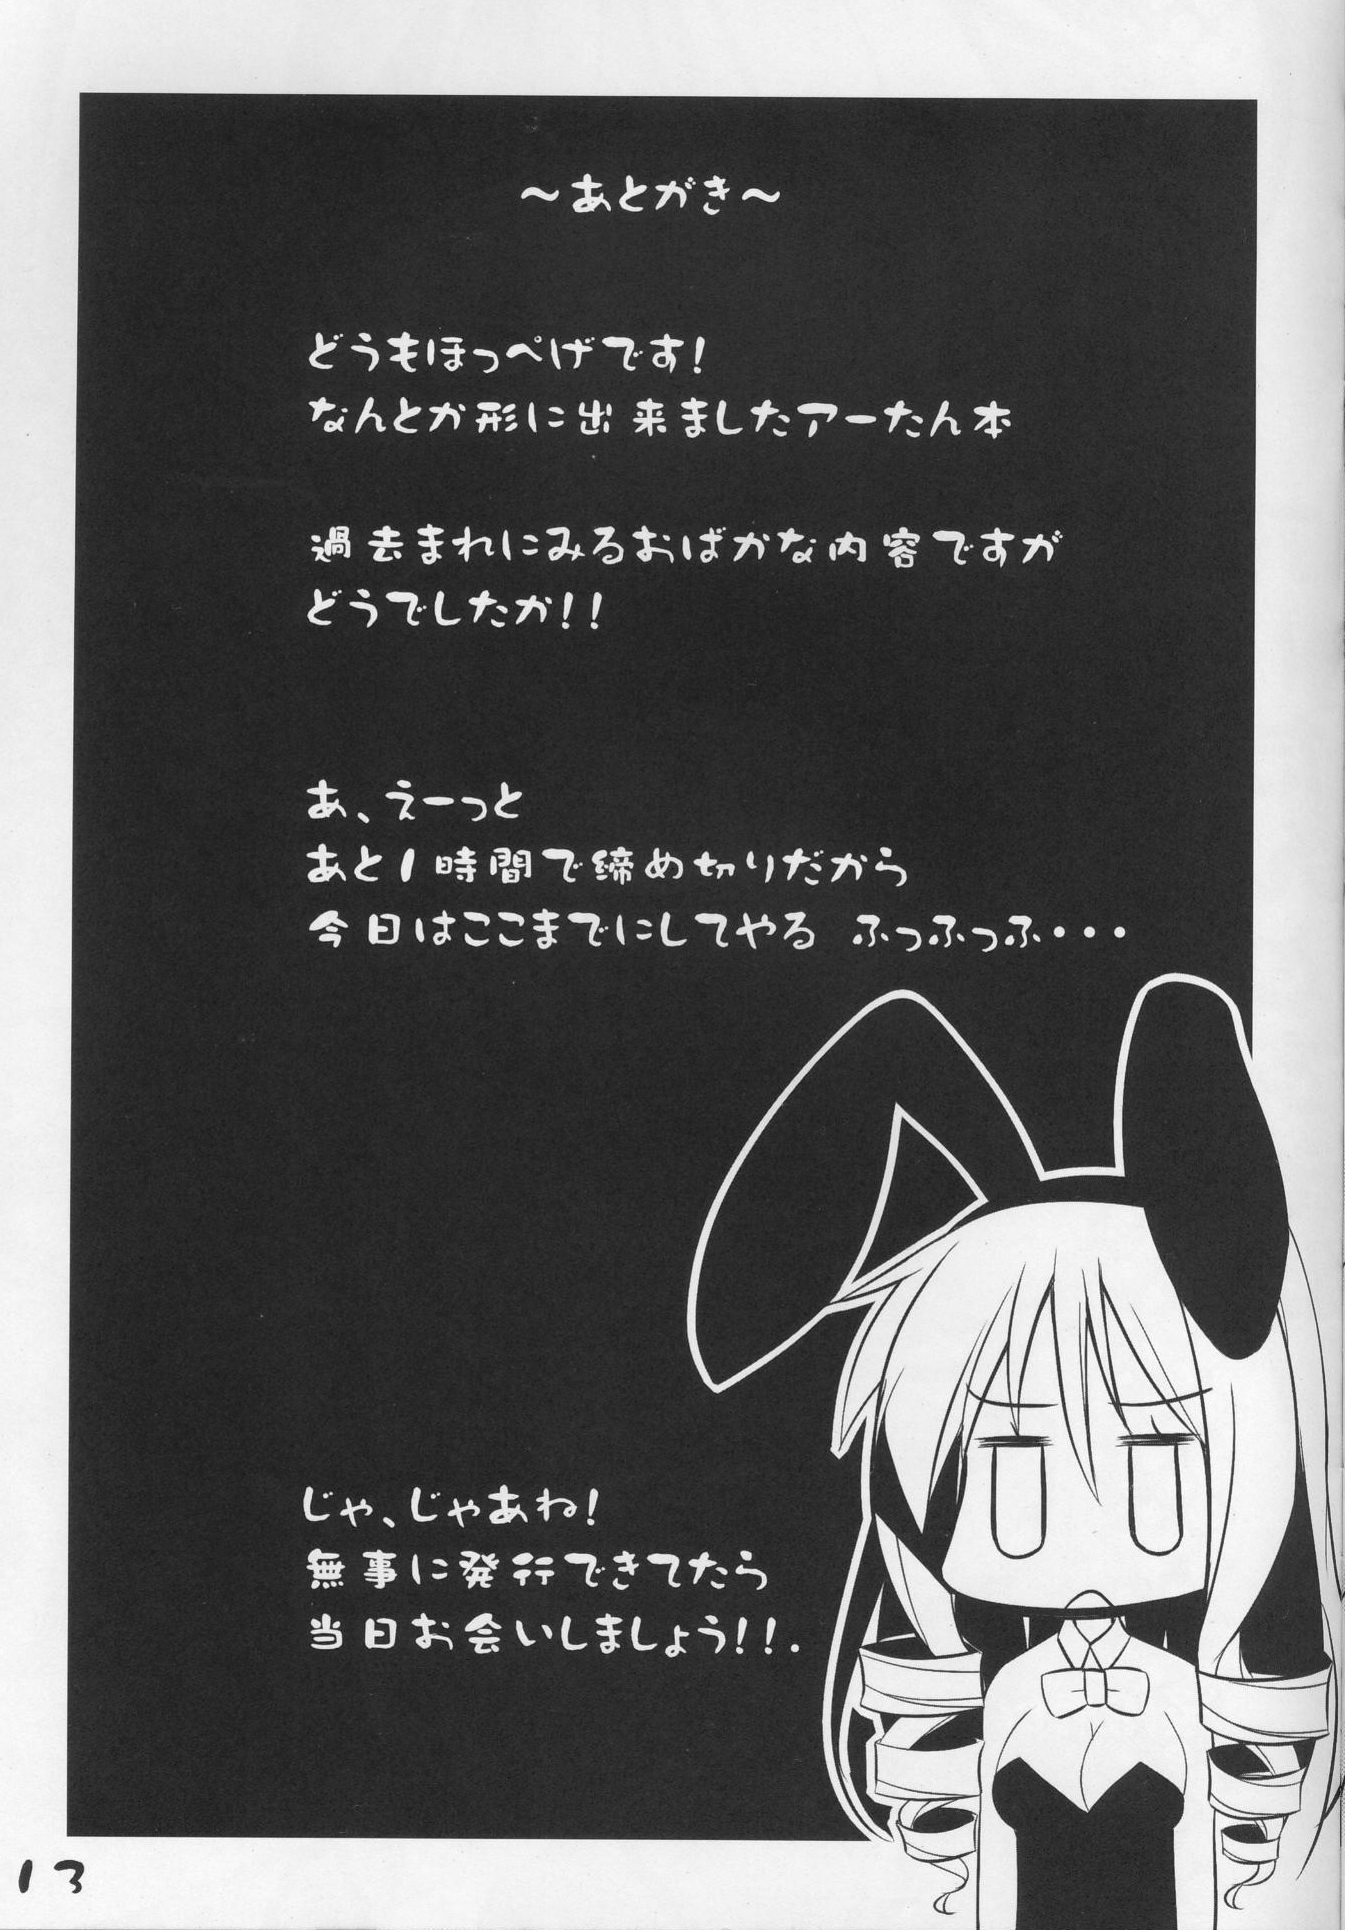 ～あとがき～
どうもほっぺげです！
なんとか形に出来ましたアーたん本
過去まれにみるおばかな内容ですが
どうでしたか！！
あ、えーっと
あと1時間で締め切りだから
今日はここまでにしてやる ふっふっふ・・・
じゃ、じゃあね！
無事に発行できてたら
当日お会いしましょう！！．
13